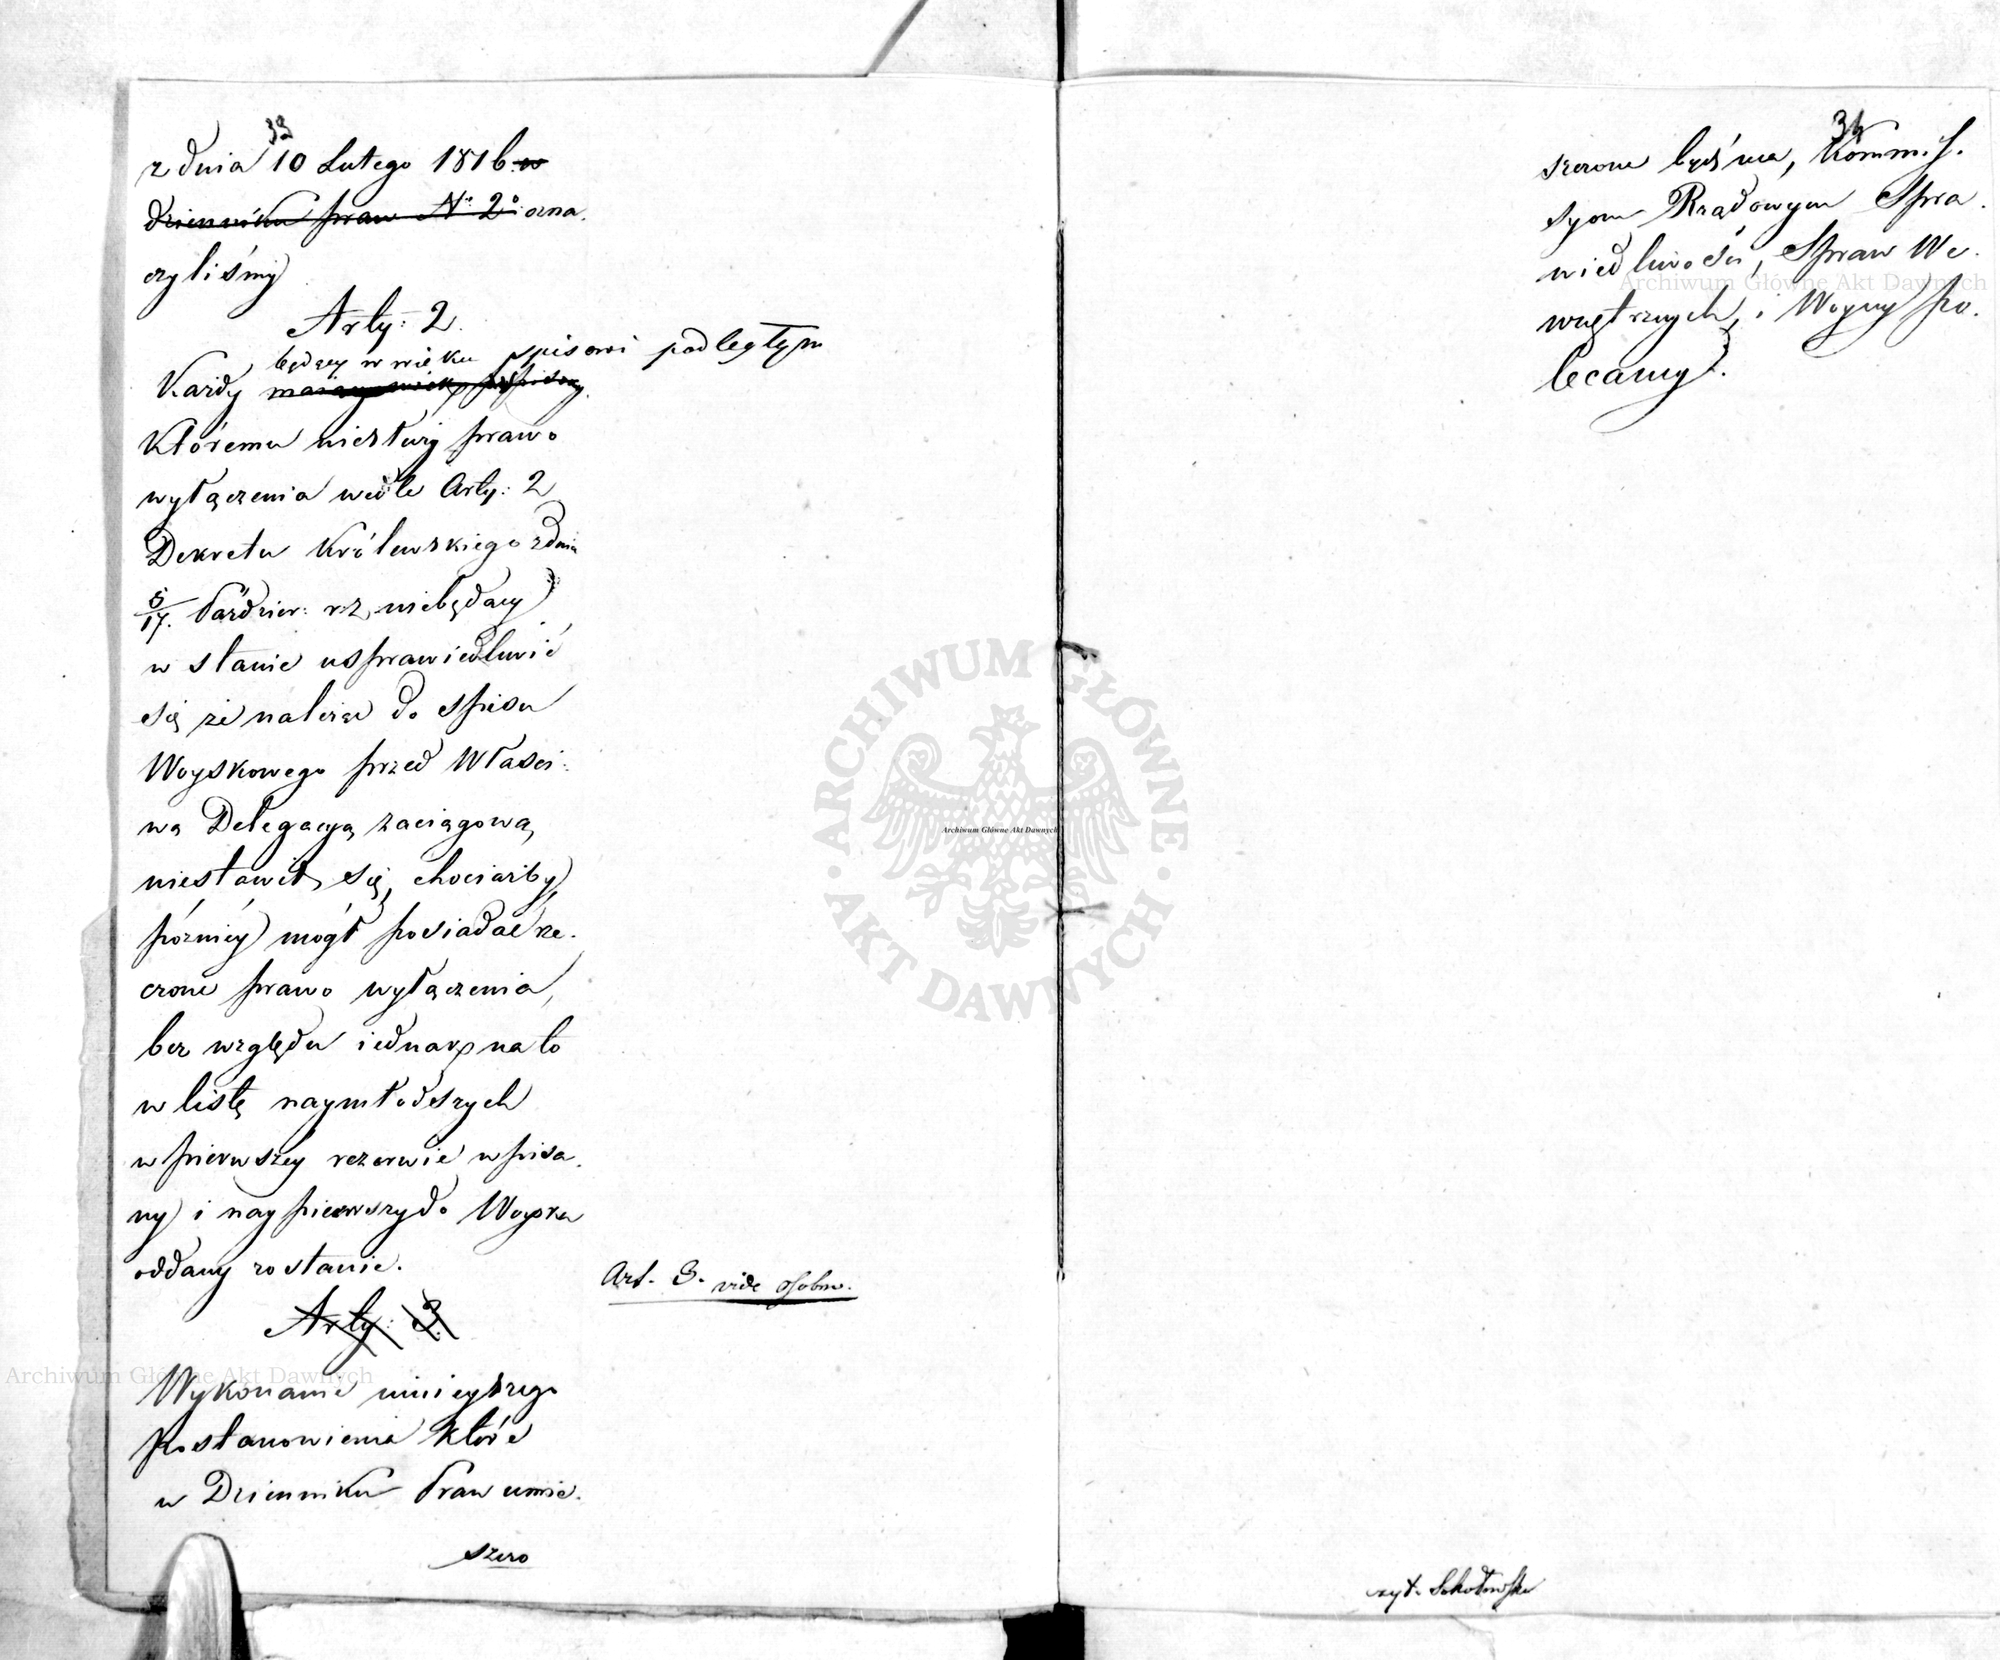 33
z dnia 10 Lutego 1816. w
dzienniku praw No 2o ozna.
czyliśmy
Arty: 2.
będący w wieku spisowi podległym
Każdy mający wiek
któremu niesłuży prawo
wyłączenia wedle Arty: 2
Dekretu Królewskiego z dnia
5/17. Paźdźier: r. z, niebędący
w stanie usprawiedliwić
się że należąc do spisu
Woyskowego przed Właści:
wą Delegacyą zaciągową,
niestawił się, chociażby
późniéy mógł posiadać rze.
czone prawo wyłączenia,
bez względu iednak na to
w listę naymłodszych
w pierwszey rezerwie wpisa.
ny i naypierwszy do Woyska
oddany zostanie.
Art. 3. vide osobno.
Arty: 3.
Wykonanie ninieyszego
postanowienia które
w Dzienniku Praw umie.
szczo
34
szczone bydź ma, Kommis.
syom Rządowym Spra.
wiedliwości, Spraw We.
wnętrznych, i Woyny po.
lecamy.
czyt. Sokołowski
Archiwum Główne Akt Dawnych
Archiwum Główne Akt Dawnych
Archiwum Główne Akt Dawnych
ARCHIWUM GŁÓWNE
AKT DAWNYCH